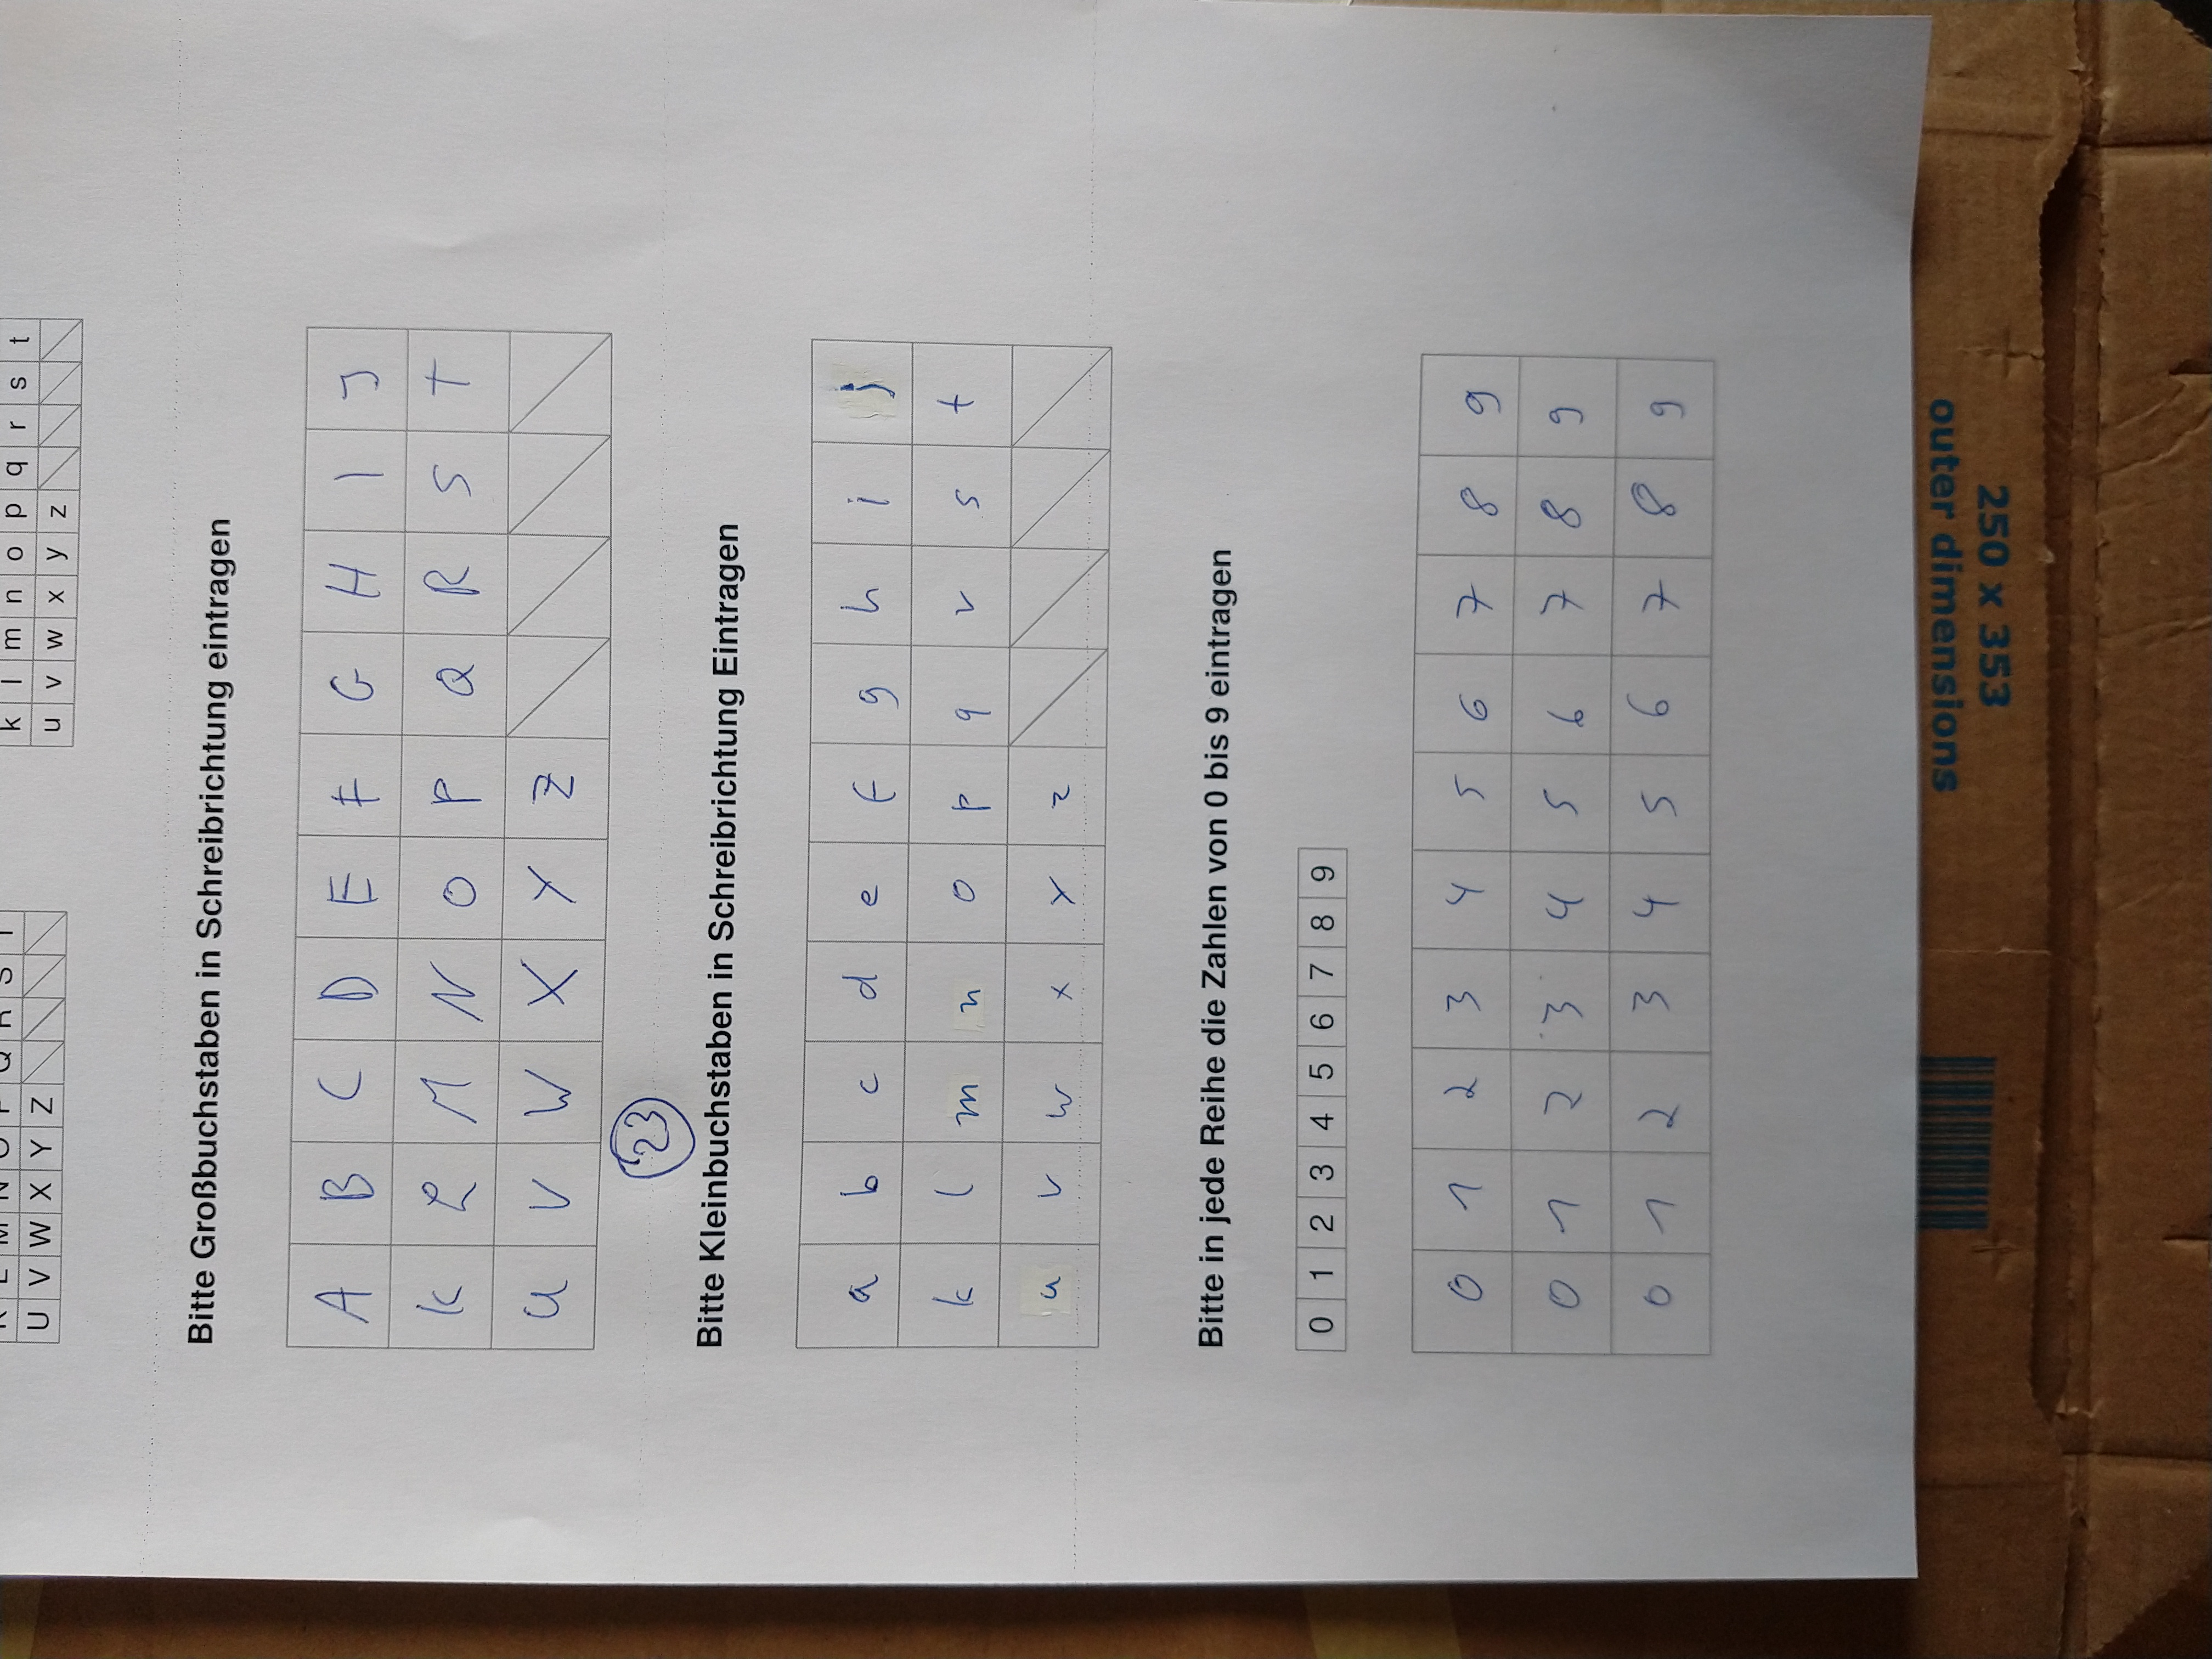 K L M N O P Q R S T
U V W X Y Z
k l m n o p q r s t
u v w x y z
Bitte Großbuchstaben in Schreibrichtung eintragen
A B C D E F G H I J
K L M N O P Q R S T
U V W X Y Z
23
Bitte Kleinbuchstaben in Schreibrichtung Eintragen
a b c d e f g h i j
k l m n o p q r s t
u v w x y z
Bitte in jede Reihe die Zahlen von 0 bis 9 eintragen
0 1 2 3 4 5 6 7 8 9
0 1 2 3 4 5 6 7 8 9
0 1 2 3 4 5 6 7 8 9
0 1 2 3 4 5 6 7 8 9
250 x 353
outer dimensions